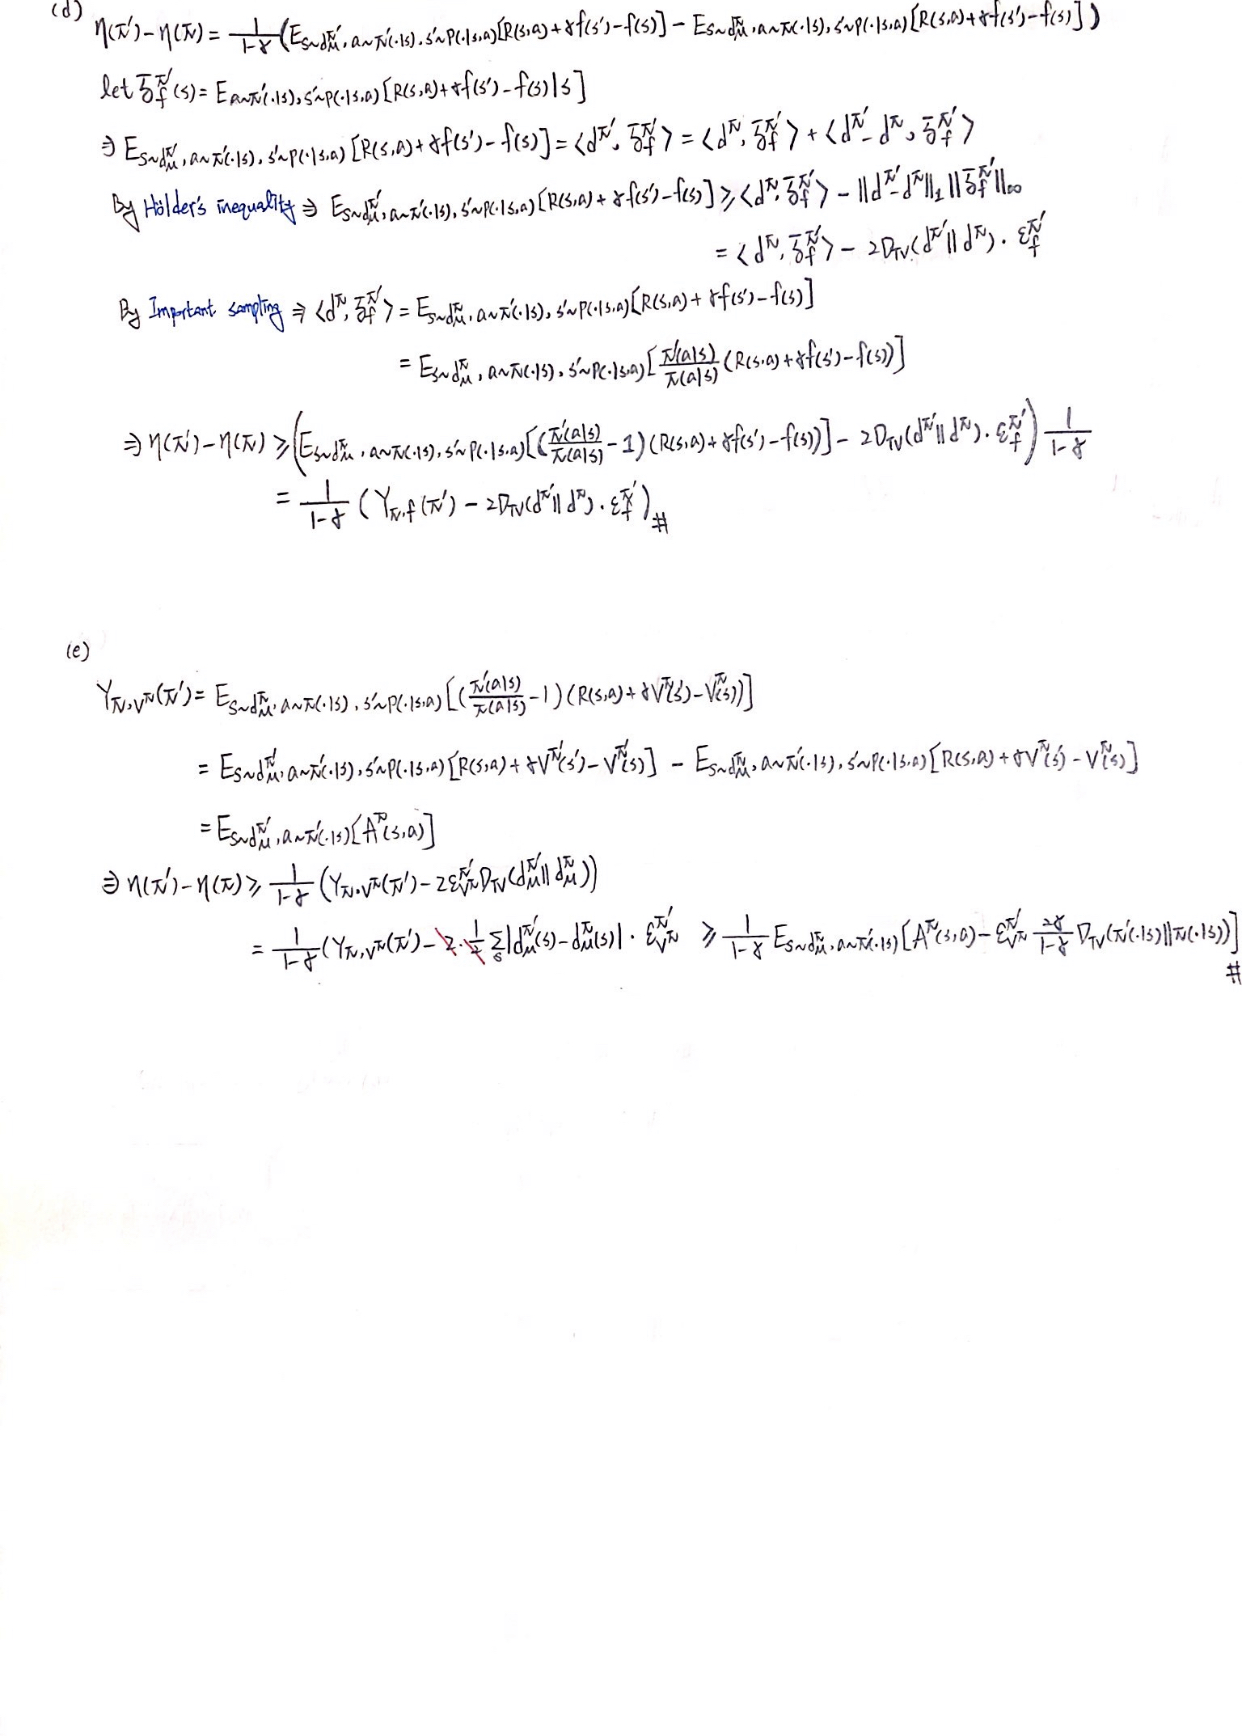 (d) η(π')-η(π) = \frac{1}{1-γ}(E_{s~d_μ^{π'}, a~π'(·|s), s'~P(·|s,a)}[R(s,a)+γf(s')-f(s)] - E_{s~d_μ^π, a~π(·|s), s'~P(·|s,a)}[R(s,a)+γf(s')-f(s)])
let \bar{δ}_f^{π'}(s) = E_{a~π'(·|s), s'~P(·|s,a)}[R(s,a)+γf(s')-f(s)|s]
⇒ E_{s~d_μ^{π'}, a~π'(·|s), s'~P(·|s,a)}[R(s,a)+γf(s')-f(s)] = <d^{π'}, \bar{δ}_f^{π'}> = <d^π, \bar{δ}_f^{π'}> + <d^{π'}-d^π, \bar{δ}_f^{π'}>
By Hölder's inequality ⇒ E_{s~d_μ^{π'}, a~π'(·|s), s'~P(·|s,a)}[R(s,a)+γf(s')-f(s)] ≥ <d^π, \bar{δ}_f^{π'}> - ||d^{π'}-d^π||_1 ||\bar{δ}_f^{π'}||_∞
= <d^π, \bar{δ}_f^{π'}> - 2D_{TV}(d^{π'}||d^π)·ε_f^{π'}
By Important sampling ⇒ <d^π, \bar{δ}_f^{π'}> = E_{s~d_μ^π, a~π'(·|s), s'~P(·|s,a)}[R(s,a)+γf(s')-f(s)]
= E_{s~d_μ^π, a~π(·|s), s'~P(·|s,a)}[\frac{π'(a|s)}{π(a|s)}(R(s,a)+γf(s')-f(s))]
⇒ η(π')-η(π) ≥ (E_{s~d_μ^π, a~π(·|s), s'~P(·|s,a)}[(\frac{π'(a|s)}{π(a|s)}-1)(R(s,a)+γf(s')-f(s))] - 2D_{TV}(d^{π'}||d^π)·ε_f^{π'}) \frac{1}{1-γ}
= \frac{1}{1-γ}(Y_{π,f}(π') - 2D_{TV}(d^{π'}||d^π)·ε_f^{π'}) #
(e)
Y_{π,V^π}(π') = E_{s~d_μ^π, a~π(·|s), s'~P(·|s,a)}[(\frac{π'(a|s)}{π(a|s)}-1)(R(s,a)+γV^π(s')-V^π(s))]
= E_{s~d_μ^{π'}, a~π'(·|s), s'~P(·|s,a)}[R(s,a)+γV^{π'}(s')-V^{π'}(s)] - E_{s~d_μ^π, a~π'(·|s), s'~P(·|s,a)}[R(s,a)+γV^π(s')-V^π(s)]
= E_{s~d_μ^{π'}, a~π'(·|s)}[A^π(s,a)]
⇒ η(π')-η(π) ≥ \frac{1}{1-γ}(Y_{π,V^π}(π') - 2ε_{V^π}^{π'} D_{TV}(d_μ^{π'}||d_μ^π))
= \frac{1}{1-γ}(Y_{π,V^π}(π') - 2·\frac{1}{2} Σ_s|d_μ^{π'}(s)-d_μ^π(s)|·ε_{V^π}^{π'} ≥ \frac{1}{1-γ} E_{s~d_μ^π, a~π'(·|s)}[A^π(s,a) - ε_{V^π}^{π'} \frac{2γ}{1-γ} D_{TV}(π'(·|s)||π(·|s))]
#